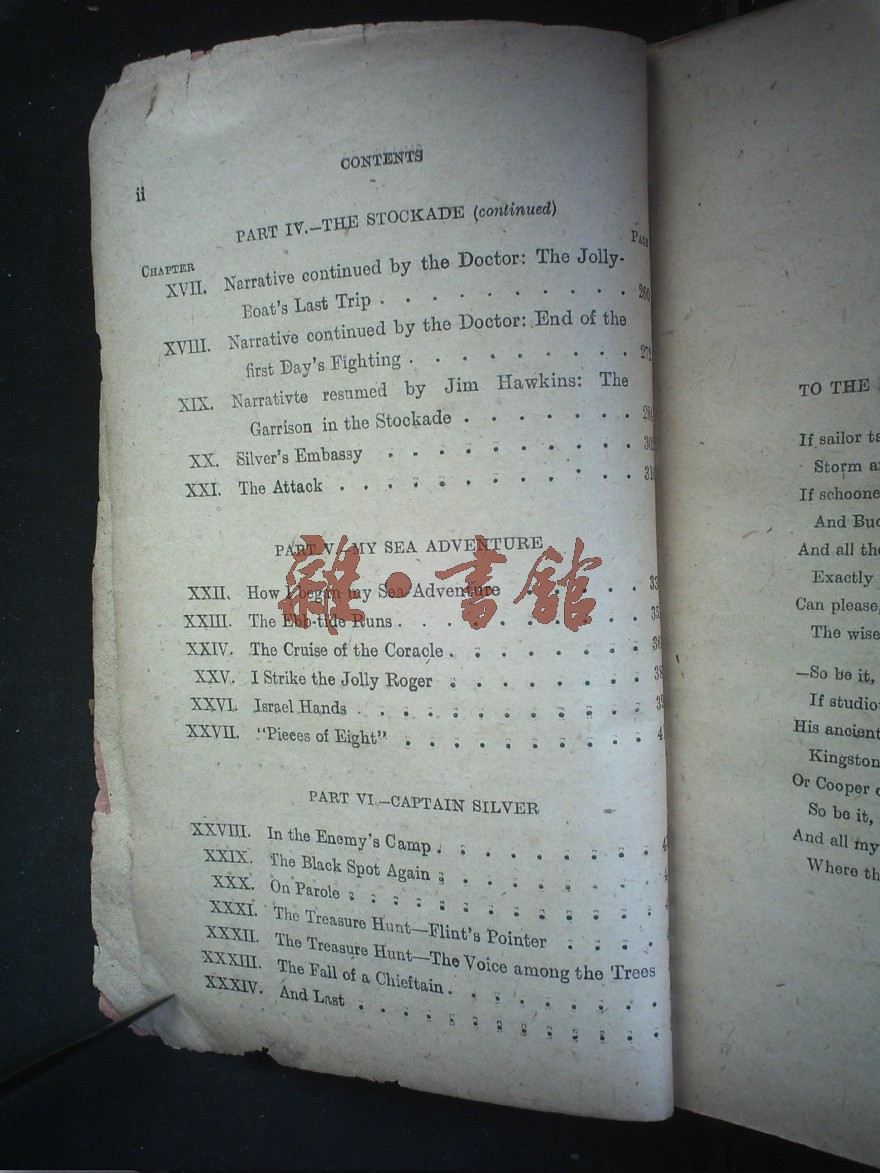 CONTENTS
ii
PART IV.—THE STOCKADE (continued)
CHAPTER
XVII. Narrative continued by the Doctor: The Jolly-
Boat's Last Trip . . . . . . . . . . 260
XVIII. Narrative continued by the Doctor: End of the
first Day's Fighting . . . . . . . . .
XIX. Narrativte resumed by Jim Hawkins: The
Garrison in the Stockade . . . . . . .
XX. Silver's Embassy . . . . . . . . . .
XXI. The Attack . . . . . . . . . . .
PART V.—MY SEA ADVENTURE
XXII. How I began my Sea Adventure . . . . .
XXIII. The Ebb-tide Runs . . . . . . . . .
XXIV. The Cruise of the Coracle . . . . . . . .
XXV. I Strike the Jolly Roger . . . . . . . .
XXVI. Israel Hands . . . . . . . . . . . .
XXVII. "Pieces of Eight" . . . . . . . . . .
PART VI.—CAPTAIN SILVER
XXVIII. In the Enemy's Camp . . . . . . . . .
XXIX. The Black Spot Again . . . . . . . . .
XXX. On Parole . . . . . . . . . . . .
XXXI. The Treasure Hunt—Flint's Pointer . . . .
XXXII. The Treasure Hunt—The Voice among the Trees
XXXIII. The Fall of a Chieftain . . . . . . . . .
XXXIV. And Last . . . . . . . . . . . .
雜·書館
TO THE
If sailor
Storm
If
And
And all
Exactly
Can please,
The wise
—So be it,
If
His ancient
Kingston
Or Cooper
So be it,
And all my
Where